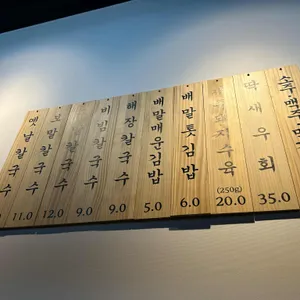 옛날칼국수
11.0
보말칼국수
12.0
비빔칼국수
9.0
해장칼국수
9.0
배말매운김밥
5.0
배말톳김밥
6.0
돼지수육
(250g)
20.0
딱새우회
35.0
소주맥주